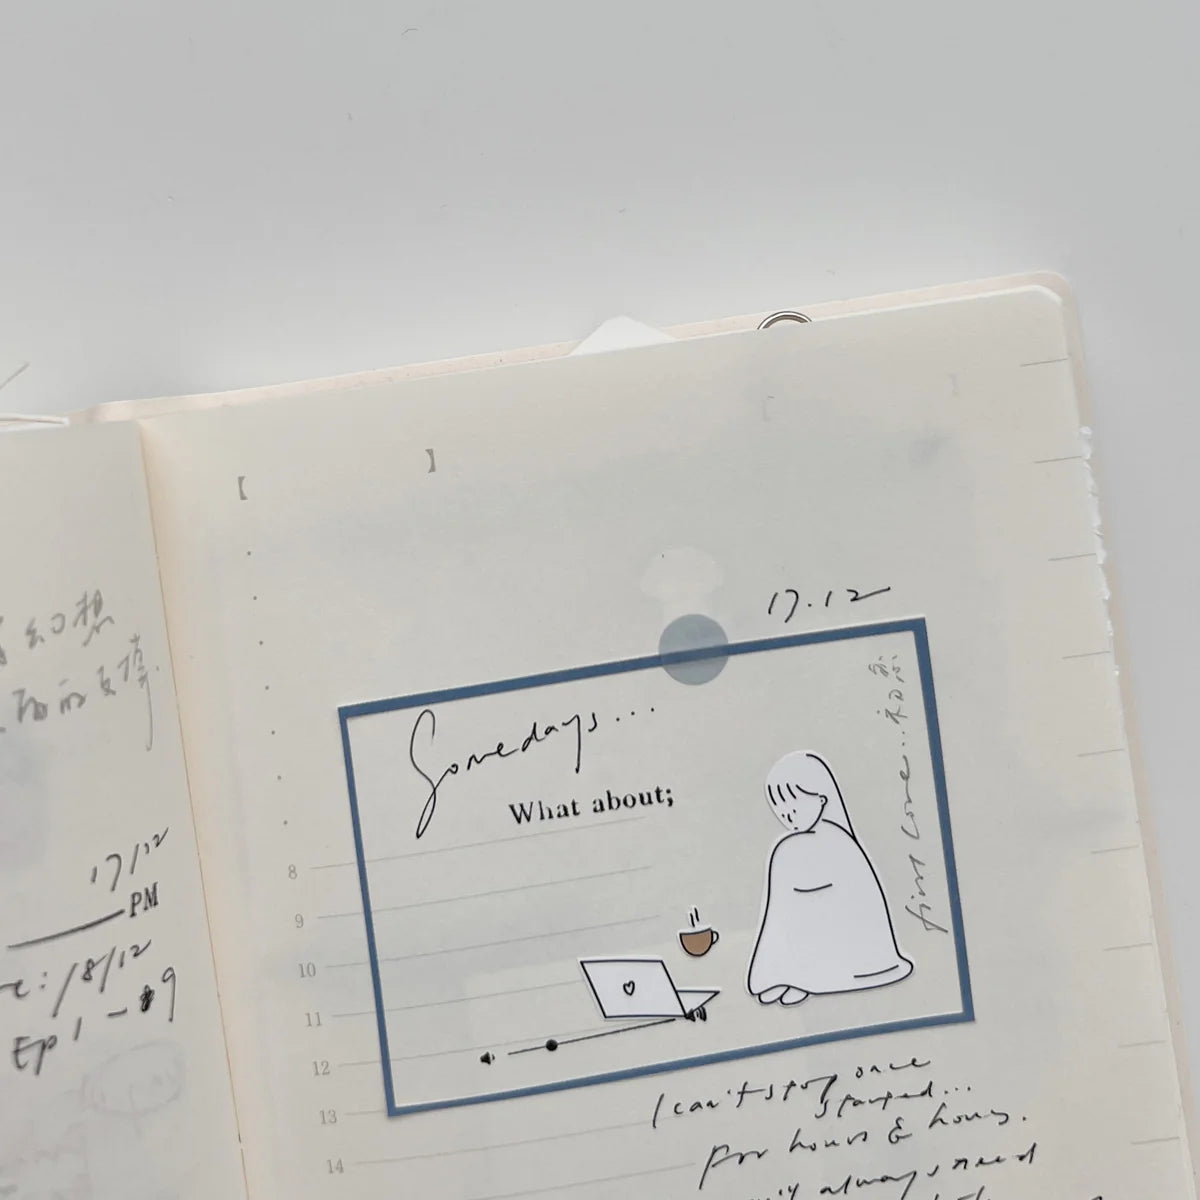 幻想
17/12
PM
18/12
Ep 1 - 9
【 】
17.12
Somedays...
What about;
first love..初恋
8
9
10
11
12
13
14
I can't stop once
started...
for hours & hours.
always need